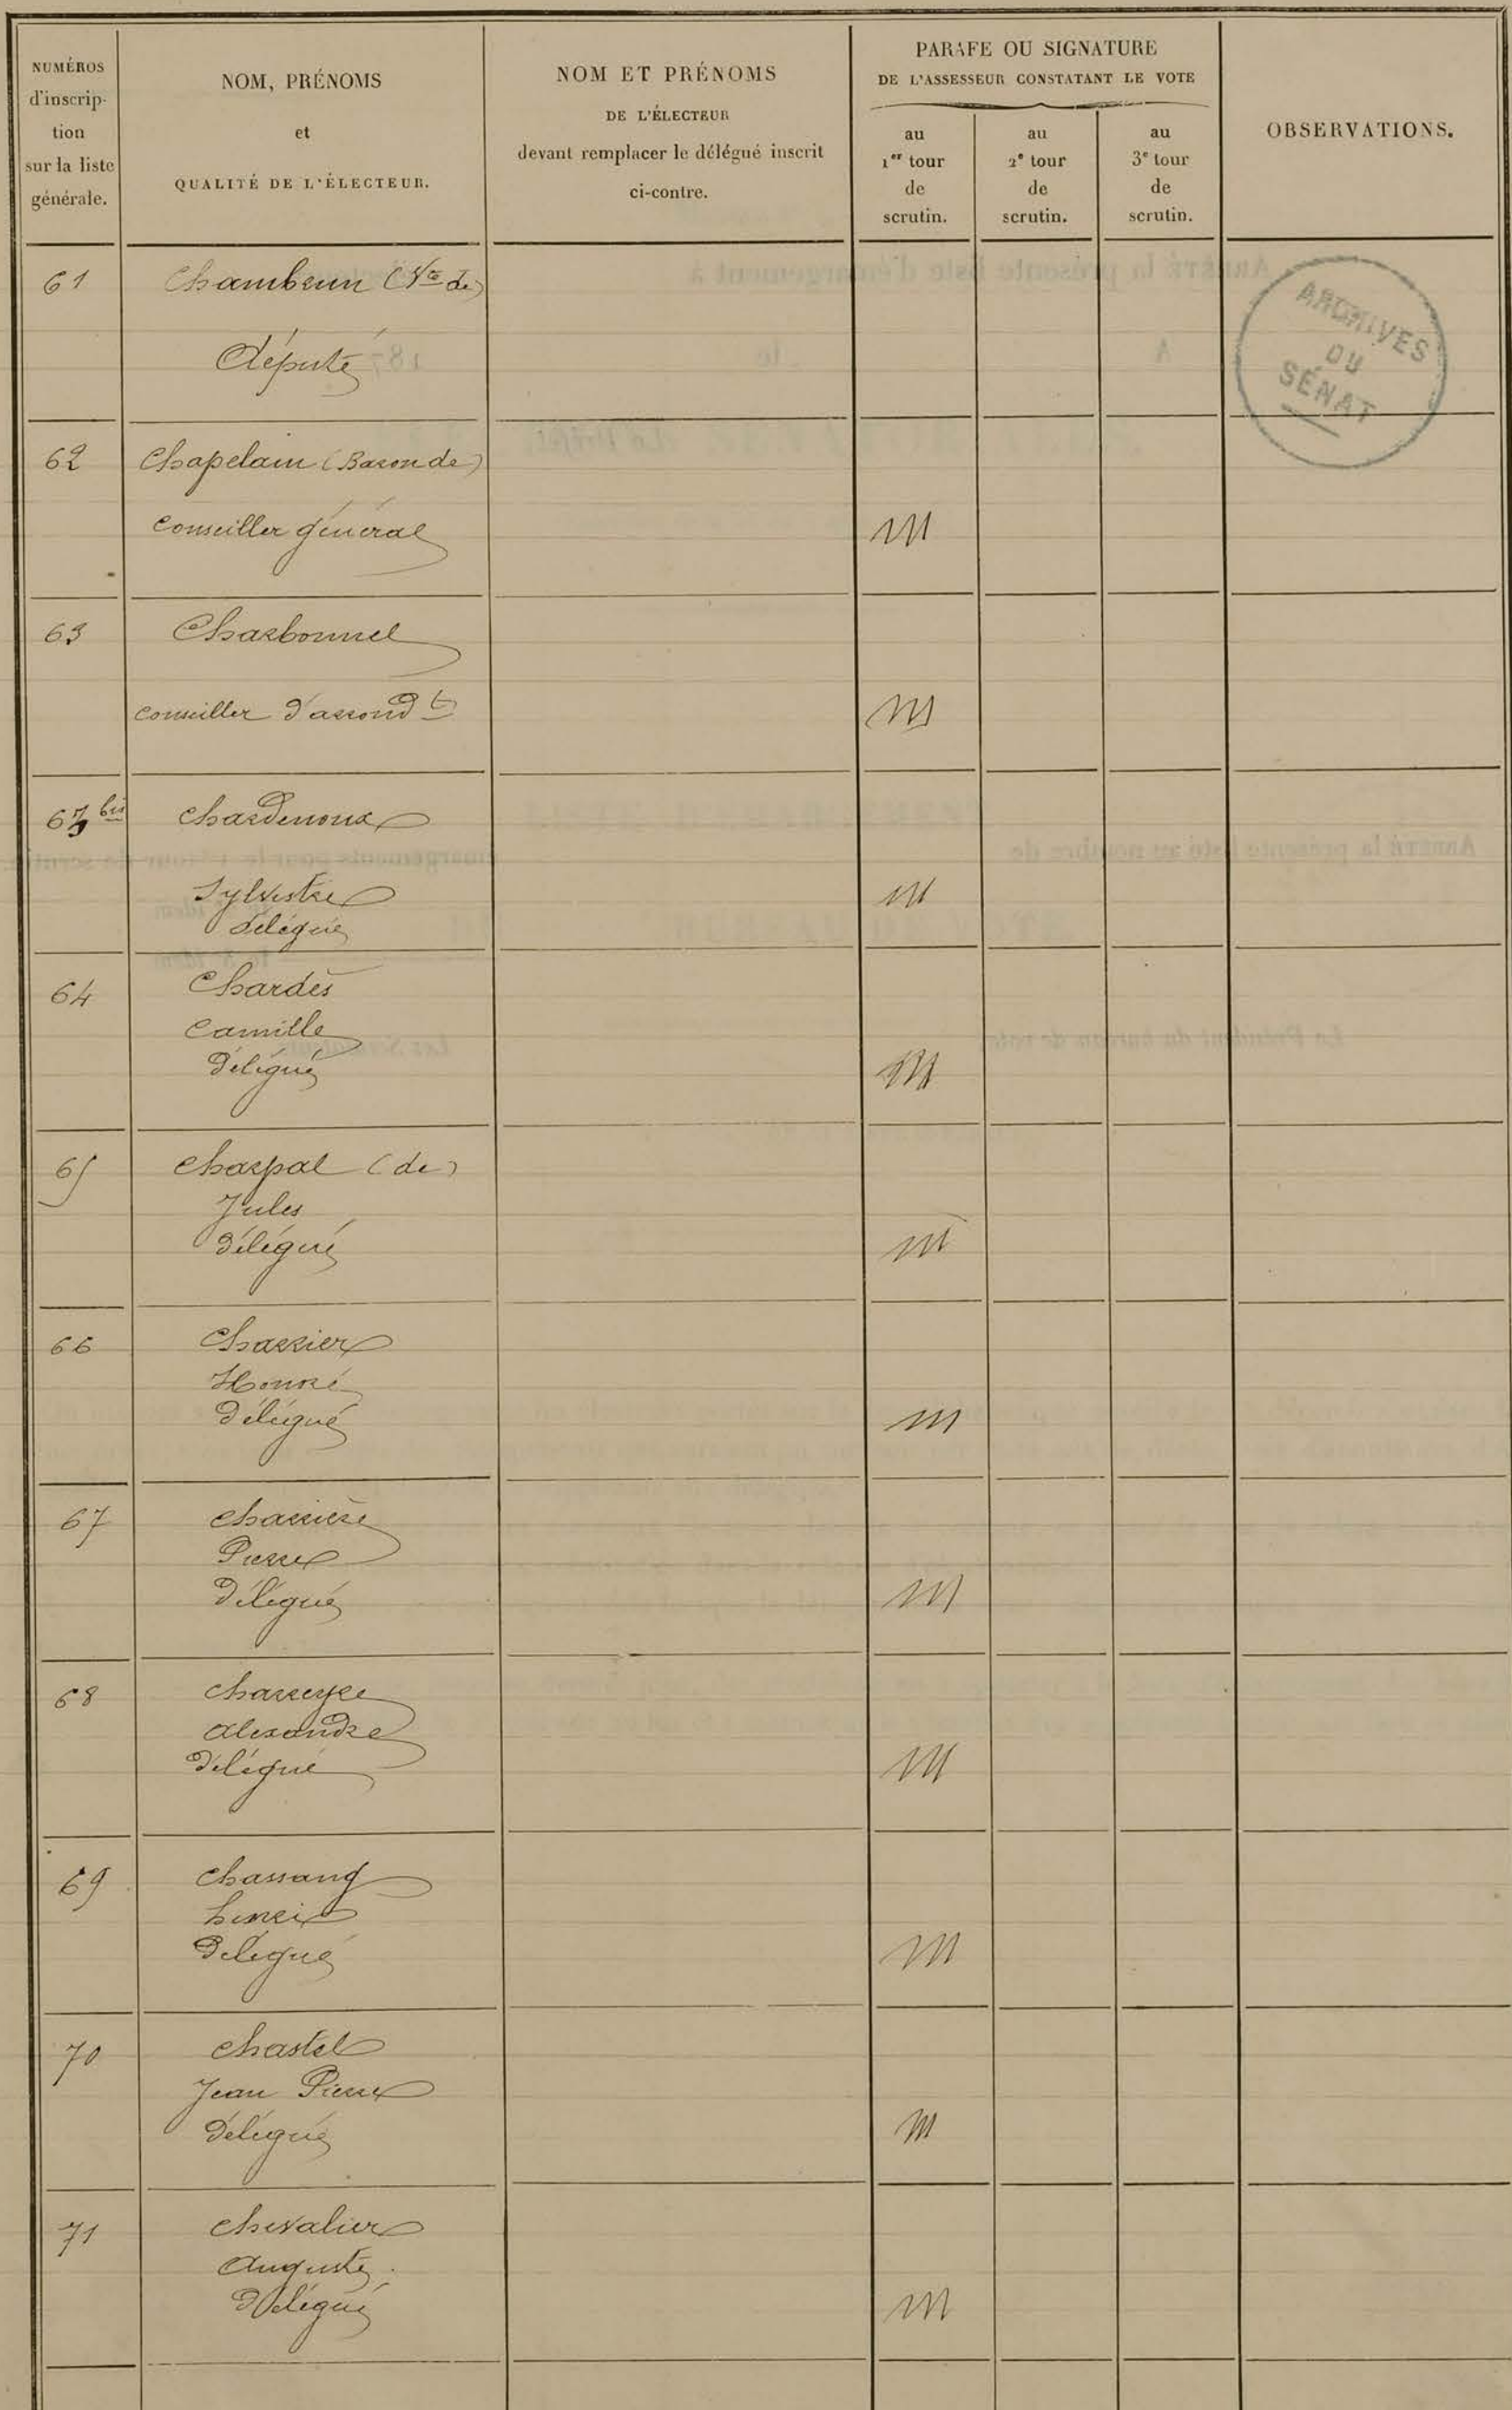 NUMÉROS
d'inscrip-
tion
sur la liste
générale.
NOM, PRÉNOMS
et
QUALITÉ DE L'ÉLECTEUR.
NOM ET PRÉNOMS
DE L'ÉLECTEUR
devant remplacer le délégué inscrit
ci-contre.
PARAFE OU SIGNATURE
DE L'ASSESSEUR CONSTATANT LE VOTE
au
1er tour
de
scrutin.
au
2e tour
de
scrutin.
au
3e tour
de
scrutin.
OBSERVATIONS.
ARCHIVES
DU
SÉNAT
61 Chambrun (Vte de)
député
62 Chapelain (Baron de)
Conseiller général
63 Charbonnel
conseiller d'arrondt
63 bis Chardenoux
Sylvestre
délégué
64 Chardès
Camille
Délégué
65 Charpal (de)
Jules
Délégué
66 Charrier
Honoré
Délégué
67 Charrière
Pierre
Délégué
68 Charreyre
Alexandre
Délégué
69 Chassang
henri
Délégué
70 Chastel
Jean Pierre
Délégué
71 Chevalier
Auguste
Délégué